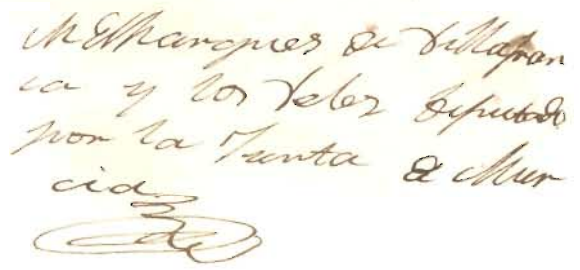 El Marques de Villafran
ca y los Velez Diputado
por la Junta de Mur
cia